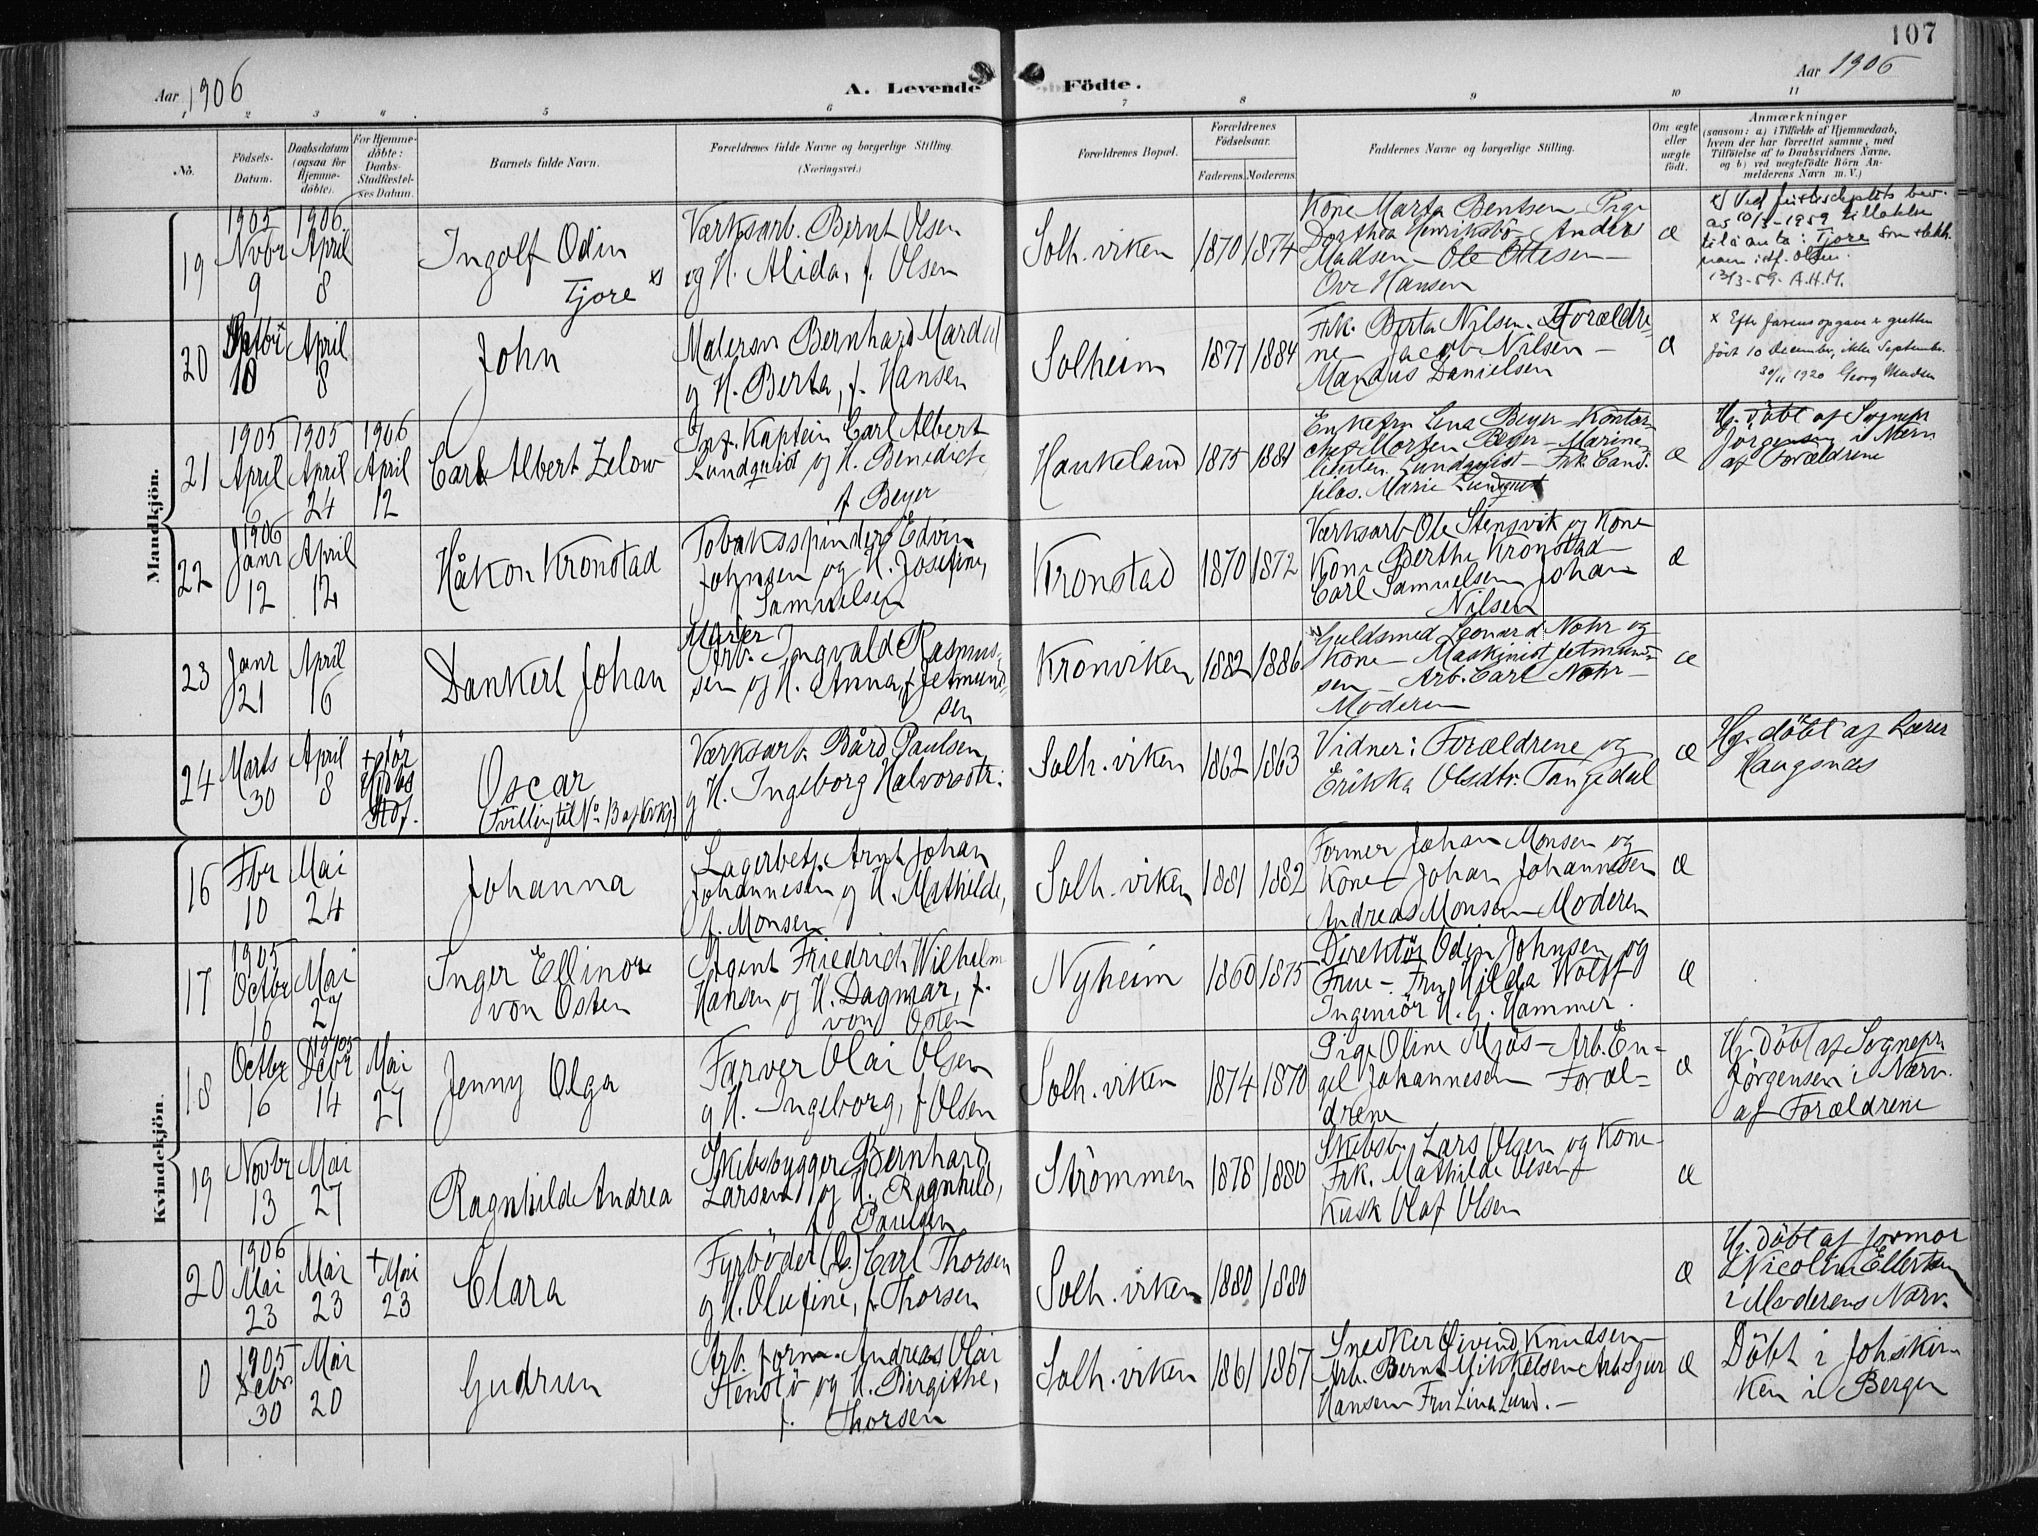 107
Aar 1906
A. Levende Födte.
Aar 1906
1 2 3 4 5 6 7 8 9 10 11
No.
Födsels-Datum.
Daabsdatum (ogsaa for Hjemmedöbte).
For Hjemmedöbte: Daabs-Stadfæstelses Datum.
Barnets fulde Navn.
Forældrenes fulde Navne og borgerlige Stilling. (Næringsvei.)
Forældrenes Bopæl.
Forældrenes Födselsaar.
Faderens. Moderens.
Faddernes Navne og borgerlige Stilling.
Om ægte eller uægte födt.
Anmærkninger
(saasom: a) i Tilfælde af Hjemmedaab, hvem der har forrettet samme, med Tilföielse af to Daabsvidners Navne, og b) ved uægtefödte Börn Anmelderens Navn m. V.)
Mandkjön.
19
1905 Novbr 9
1906 April 8
Ingolf Odin
Tjore x)
Værksarb. Bernt Olsen
og H. Alida, f. Olsen
Solh.viken
1870 1874
Kone Marta Bentsen Pige
Dorthea Henriksbö - Anders
Madsen - Ole Ottesen -
Ove Hansen
Æ
x) Ved justisdeptets bev.
av 10/3-1959 tillatelse
til å anta: Tjore som slekts
navn istf. Olsen.
13/3-59. A.H.M.
20
10
April 8
John
Malersv Bernhard Mardal
g H. Berta, f. Hansen
Solheim
1877 1884
Frk. Berta Nilsen. Forældre-
ne - Jacob Nilsen -
Mandus Danielsen
Æ
x Efter farens opgave er gutten
født 10 December, ikke September.
30/11 1920 Georg
21
1905 April 6
1905 April 24
1906 April 12
Carl Albert Zelow
Inf. Kaptein Carl Albert
Lundquist og H. Benedicte
f Beyer
Haukeland
1875 1881
Enkefru Lena Beyer - Kontor
chef Morten Beyer - Marine
Lundquist - Frk Cand.
filos. Marie Lundquist
Æ
Hj. döbt af Sognepr
Jörgensen i Nærv
af Forældrene
22
1906 Janr 12
April 12
Håkon Kronstad
Tobaksspinder Edvin
Johnsen og H. Josefine,
f Samuelsen
Kronstad
1870 1872
Værksarb Ole Stensvik og Kone
Kone Berthe Kronstad
Carl Samuelsen Johan
Nilsen
Æ
23
Janr 21
April 16
Dankert Johan
Murer
Arb. Ingvald Rasmus-
sen og H. Anna, f Jetmund-
sen
Kronviken
1882 1886
Guldsmed Leonard Nohr og
Kone - Maskinist Jetmund-
sen - Arb. Carl Nohr -
Moderen
Æ
24
Marts 30
April 8
Oscar
(Tvilling til No 13 af Kvkj)
Værksarb. Bård Paulsen
g H. Ingeborg Halvorsdtr.
Solh.viken
1862 1863
Vidner: Forældrene og
Erikka Olsdtr. Tangedal
Æ
Hj. döbt af Lærer
Haugsnæs
Kvindekjön.
16
Fbr 10
Mai 24
Johanna
Lagerbetj. Arnt Johan
Johannesen og H. Mathilde,
f. Monsen
Solh.viken
1881 1882
Former Johan Monsen og
Kone - Johan Johannesen
Andreas Monsen - Moderen
Æ
17
1905 Octbr 16
Mai 27
Inger Ellinor
von Osten
Agent Friedrich Wilhelm
Hansen og H. Dagmar, f.
von Osten
Nyheim
1860 1875
Direktör Odin Johnsen og
Frue - Fru Hilda Wolff
Ingeniör H. G. Hammer.
Æ
18
Octbr 16
1905 Decbr 14
Mai 27
Jenny Olga
Farver Olai Olsen
g H. Ingeborg, f Olsen
Solh.viken
1874 1870
Pige Oline Mjös - Arb. En-
gel Johannesen Foræl-
drene
Æ
Hj. Döbt af Sognepr.
Jörgensen i Nærv.
af Forældrene
19
Novbr 13
Mai 27
Ragnhilde Andrea
Skibsbygger Bernhard
Larsen og H. Ragnhild,
f Paulsen
Strömmen
1878 1880
Skibsby. Lars Olsen og Kone
Frk. Mathilde Olsen
Kusk Olaf Olsen
Æ
20
1906 Mai 23
Mai 23
+ Mai 23
Clara
Fyrböder Carl Thorsen
g H. Olufine, f. Thorsen
Solh.viken
1880 1880
Æ
Hj. Döbt af Jormor
Nicoline Ellertsen
i Moderens Nærv.
0
1905 Decbr 30
Mai 20
Gudrun
Arb. form. Andreas Olai
Stenstö og H. Birgithe,
f. Thorsen
Solh.viken
1861 1867
Snedker Öivind Knudsen -
Arb. Bernt Mikkelsen Arb Sjur
Hansen Fru Lina Lund. -
Æ
Döbt i Johskir-
ken i Bergen